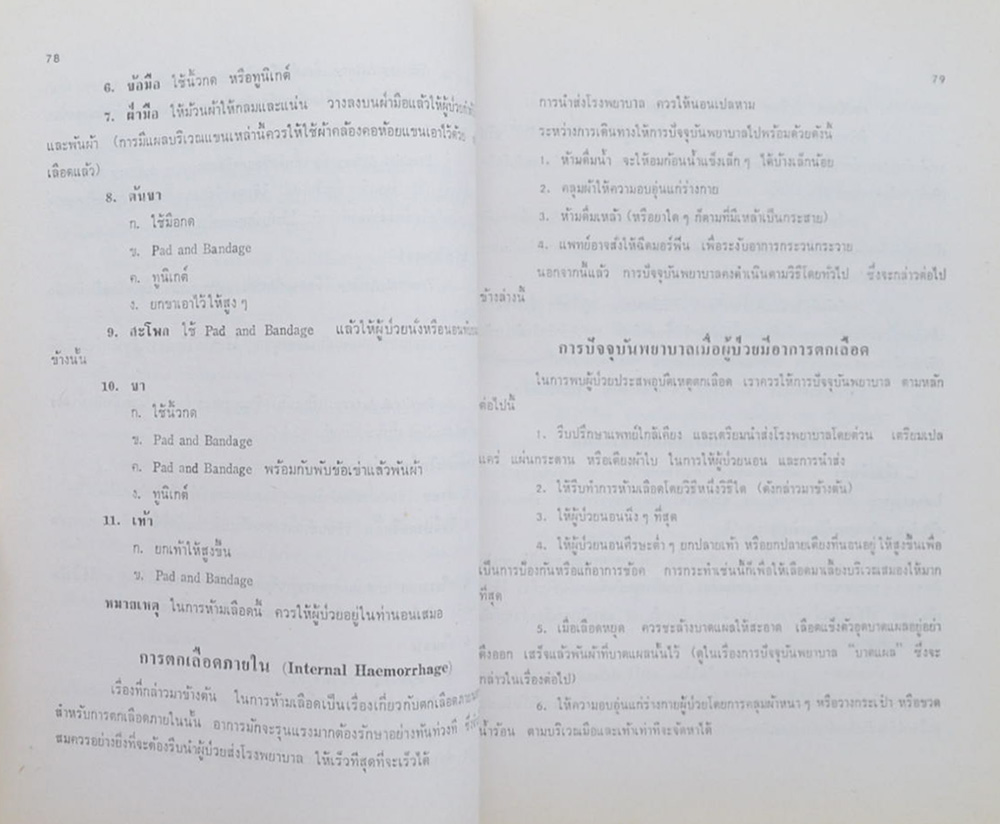 78
6. ข้อมือ ใช้นิ้วกด หรือทูนิเกต์
7. ฝ่ามือ ให้ม้วนผ้าให้กลมและแน่น วางลงบนฝ่ามือแล้วให้ผู้ป่วยกำ
และพันผ้า (การมีแผลบริเวณแขนเหล่านี้ควรให้ใช้ผ้าคล้องคอห้อยแขนเอาไว้ด้วย
เลือดแล้ว)
8. ต้นขา
ก. ใช้มือกด
ข. Pad and Bandage
ค. ทูนิเกต์
ง. ยกขาเอาไว้ให้สูง ๆ
9. สะโพก ใช้ Pad and Bandage แล้วให้ผู้ป่วยนั่งหรือนอนทับ
ข้างนั้น
10. ขา
ก. ใช้นิ้วกด
ข. Pad and Bandage
ค. Pad and Bandage พร้อมกับพับข้อเข่าแล้วพันผ้า
ง. ทูนิเกต์
11. เท้า
ก. ยกเท้าให้สูงขึ้น
ข. Pad and Bandage
หมายเหตุ ในการห้ามเลือดนี้ ควรให้ผู้ป่วยอยู่ในท่านอนเสมอ
การตกเลือดภายใน (Internal Haemorrhage)
เรื่องที่กล่าวมาข้างต้น ในการห้ามเลือดเป็นเรื่องเกี่ยวกับตกเลือดภายนอก
สำหรับการตกเลือดภายในนั้น อาการมักจะรุนแรงมากต้องรักษาอย่างทันท่วงที
สมควรอย่างยิ่งที่จะต้องรีบนำผู้ป่วยส่งโรงพยาบาล ให้เร็วที่สุดที่จะเร็วได้
79
การนำส่งโรงพยาบาล ควรให้นอนเปลหาม
ระหว่างการเดินทางให้การปัจจุบันพยาบาลไปพร้อมด้วยดังนี้
1. ห้ามดื่มน้ำ จะให้อมก้อนน้ำแข็งเล็ก ๆ ได้บ้างเล็กน้อย
2. คลุมผ้าให้ความอบอุ่นแก่ร่างกาย
3. ห้ามดื่มเหล้า (หรือยาใด ๆ ก็ตามที่มีเหล้าเป็นกระสาย)
4. แพทย์อาจสั่งให้ฉีดมอร์ฟีน เพื่อระงับอาการกระวนกระวาย
นอกจากนี้แล้ว การปัจจุบันพยาบาลคงดำเนินตามวิธีโดยทั่วไป ซึ่งจะกล่าวต่อไป
ข้างล่างนี้
การปัจจุบันพยาบาลเมื่อผู้ป่วยมีอาการตกเลือด
ในการพบผู้ป่วยประสพอุบัติเหตุตกเลือด เราควรให้การปัจจุบันพยาบาล ตามหลัก
ต่อไปนี้
1. รีบปรึกษาแพทย์ใกล้เคียง และเตรียมนำส่งโรงพยาบาลโดยด่วน เตรียมเปล
แคร่ แผ่นกระดาน หรือเตียงผ้าใบ ในการให้ผู้ป่วยนอน และการนำส่ง
2. ให้รีบทำการห้ามเลือดโดยวิธีหนึ่งวิธีใด (ดังกล่าวมาข้างต้น)
3. ให้ผู้ป่วยนอนนิ่ง ๆ ที่สุด
4. ให้ผู้ป่วยนอนศีรษะต่ำ ๆ ยกปลายเท้า หรือยกปลายเตียงที่นอนอยู่ ให้สูงขึ้นเพื่อ
เป็นการป้องกันหรือแก้อาการช้อค การกระทำเช่นนี้ก็เพื่อให้เลือดมาเลี้ยงบริเวณสมองให้มาก
ที่สุด
5. เมื่อเลือดหยุด ควรชะล้างบาดแผลให้สะอาด เลือดแข็งตัวอุดบาดแผลอยู่อย่า
ดึงออก เสร็จแล้วพันผ้าที่บาดแผลนั้นไว้ (ดูในเรื่องการปัจจุบันพยาบาล "บาดแผล" ซึ่งจะ
กล่าวในเรื่องต่อไป)
6. ให้ความอบอุ่นแก่ร่างกายผู้ป่วยโดยการคลุมผ้าหนา ๆ หรือวางกระเป๋า หรือขวด
น้ำร้อน ตามบริเวณมือและเท้าเท่าที่จะจัดหาได้